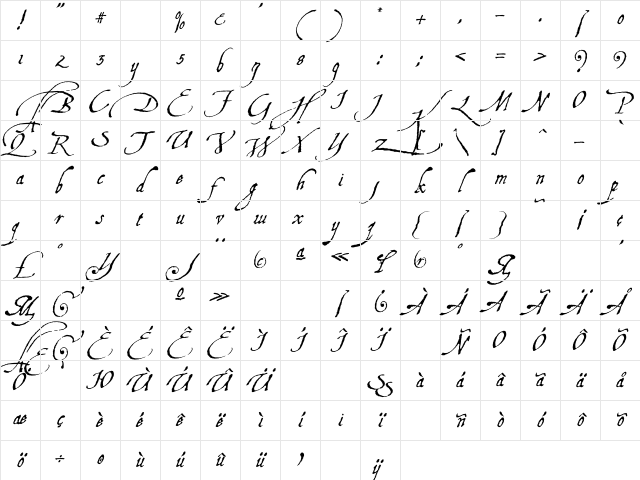 ! " # % & ' ( ) * + , - . / 0
1 2 3 4 5 6 7 8 9 : ; < = > ? @
A B C D E F G H I J K L M N O P
Q R S T U V W X Y Z [ \ ] ^ _
a b c d e f g h i j k l m n o p
q r s t u v w x y z { | } ~ ¡ ¢
£ ¥ © ª «
º » À Á Â Ã Ä Å
Æ Ç È É Ê Ë Ì Í Î Ï Ñ Ò Ó Ô Õ
Ö Ù Ú Û Ü à á â ã ä å
æ ç è é ê ë ì í î ï ñ ò ó ô õ
ö ÷ ø ù ú û ü ÿ